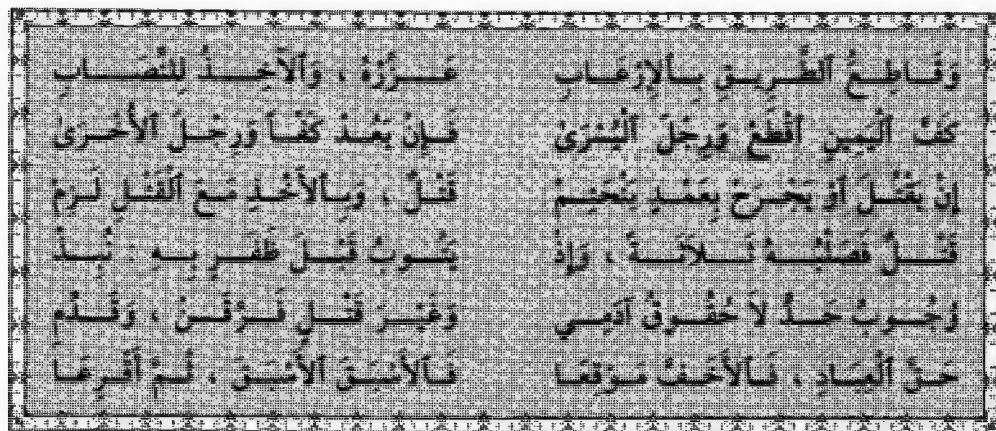 وَقَاطِعُ ٱلطَّرِيقِ بِٱلإِرْعَابِ عَزِّرْهُ ، وَٱلآخِذُ لِلنِّصَابِ
كَفَّ ٱلْيَمِينِ ٱقْطَعْ وَرِجْلَ ٱلْيُسْرَىٰ فَإِنْ يَعُدْ كَفّاً وَرِجْلَ ٱلأُخْرَىٰ
إِنْ يَقْتُلَ ٱوْ يَجْرَحْ بِعَمْدٍ يَنْحَتِمْ قَتْلٌ ، وَبِٱلأَخْذِ مَعَ ٱلْقَتْلِ لَزِمْ
قَتْلٌ فَصَلْبُهُ ثَلاثَةً ، وَإِنْ يَتُوبُ قَبْلَ ظَفَرٍ بِهِ : نُبِذْ
وُجُوبُ حَدٍّ لاَ حُقُوقُ آدَمِي وَغَيْرَ قَتْلٍ فَرِّقَنْ ، وَقَدِّمِ
حَقَّ ٱلْعِبَادِ ، فَٱلأَخَفَّ مَوْقِعَا فَٱلأَسْبَقَ ٱلأَسْبَقَ ، ثُمَّ أَقْرِعَا